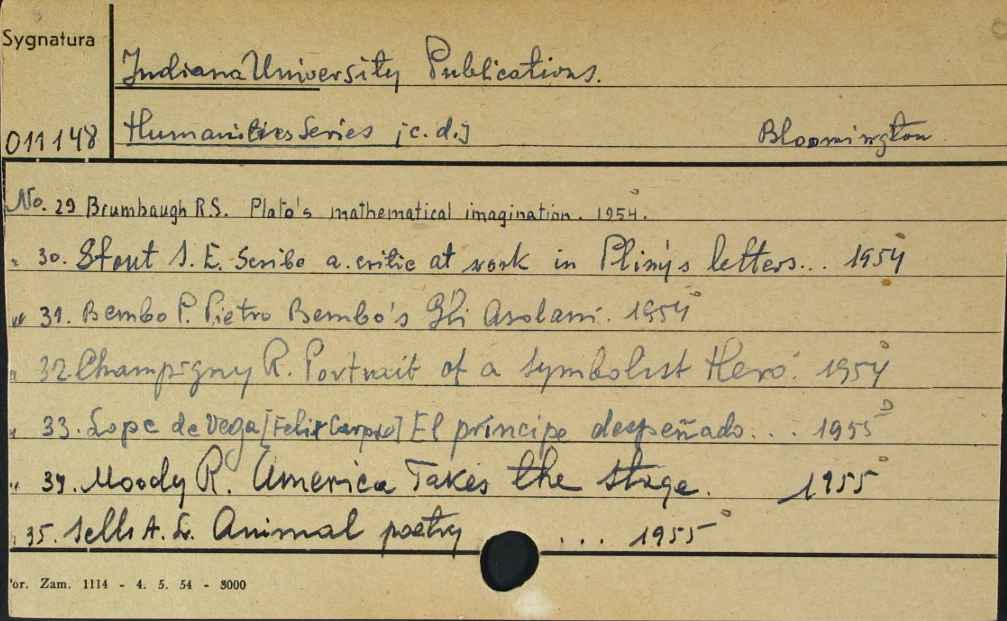 Sygnatura
Indiana University Publications.
011148
Humanities Series [c. d.]
Bloomington
No. 29 Brumbaugh R.S. Plato's mathematical imagination. 1954.
" 30. Stout S. E. Scribe a. critic at work in Pliny's letters... 1954
" 31. Bembo P. Pietro Bembo's Gli Asolani. 1954
" 32. Champigny R. Portrait of a Symbolist Hero. 1954
" 33. Lope de Vega [Felix Carpio] El principe despeñado... 1955
" 34. Moody R. America Takes the Stage. 1955
" 35. Sells A. L. Animal poetry ... 1955
or. Zam. 1114 - 4. 5. 54 - 8000